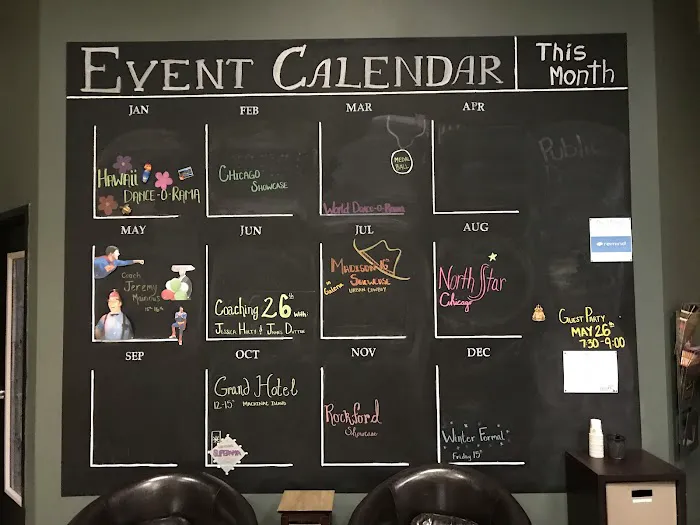 EVENT CALENDAR
This Month
JAN
FEB
MAR
APR
HAWAII
DANCE-O-RAMA
CHICAGO
SHOWCASE
MEDAL
BALL
World Dance-O-Rama
Public
MAY
JUN
JUL
AUG
Coach
Jeremy
Coaching 26th with:
MADISON
SHOWCASE
in Galena
URBAN COWBOY
North Star
Chicago
GUEST PARTY
MAY 26th
7:30-9:00
SEP
OCT
NOV
DEC
Grand Hotel
12-15th MACKINAC ISLAND
SUPERAMA
Rockford
Showcase
Winter Formal
Friday 15th